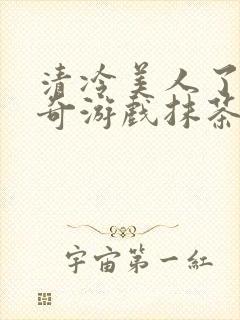 清冷美人了
奇游戏抹茶
宇宙第一红